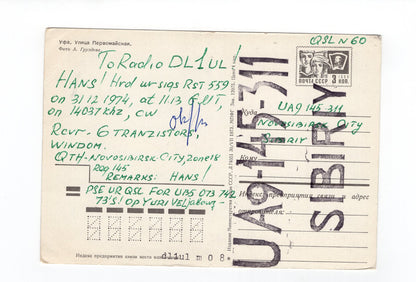 Уфа. Улица Первомайская.
Фото А. Груздева
QSL N 60
To Radio DL1UL!
HANS! Hrd ur sigs RST 559
on 31 12 1974, at 11.13 GMT,
on 14037 khz, CW
Rcvr- 6 TRANZISTORS,
WINDOM.
QTH-NOVOSIBIRSK-CITY, ZONE 18
ROQ 145
REMARKS: HANS!
PSE UR QSL FOR UA9
73'S! OP YURI
ПОЧТА СССР
3 КОП
UA9-145-311
NOVOSIBIRSK City
SIBRIY
Кому
UA9-145-311
SIBIRIY
Индекс предприятия связи и адрес
Индекс предприятия связи места
dl1ul m 08